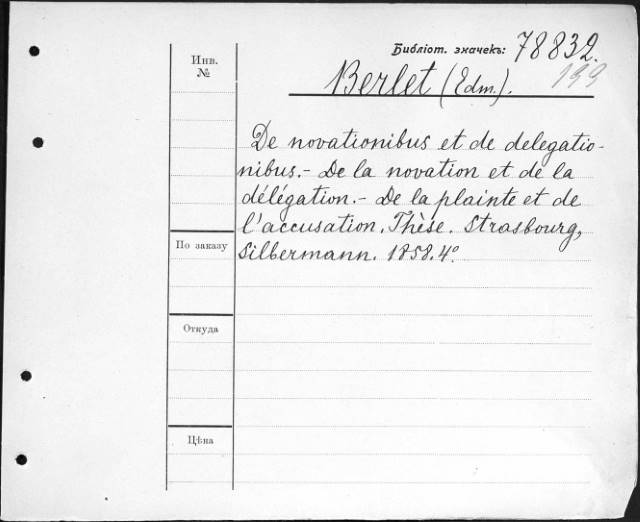 Библіот. значекъ: 78832.
199
Инв.
№
Berlet (Edm.).
De novationibus et de delegatio-
nibus.- De la novation et de la
délégation.- De la plainte et de
l'accusation. Thèse. Strasbourg,
Silbermann. 1858. 4º.
По заказу
Откуда
Цѣна